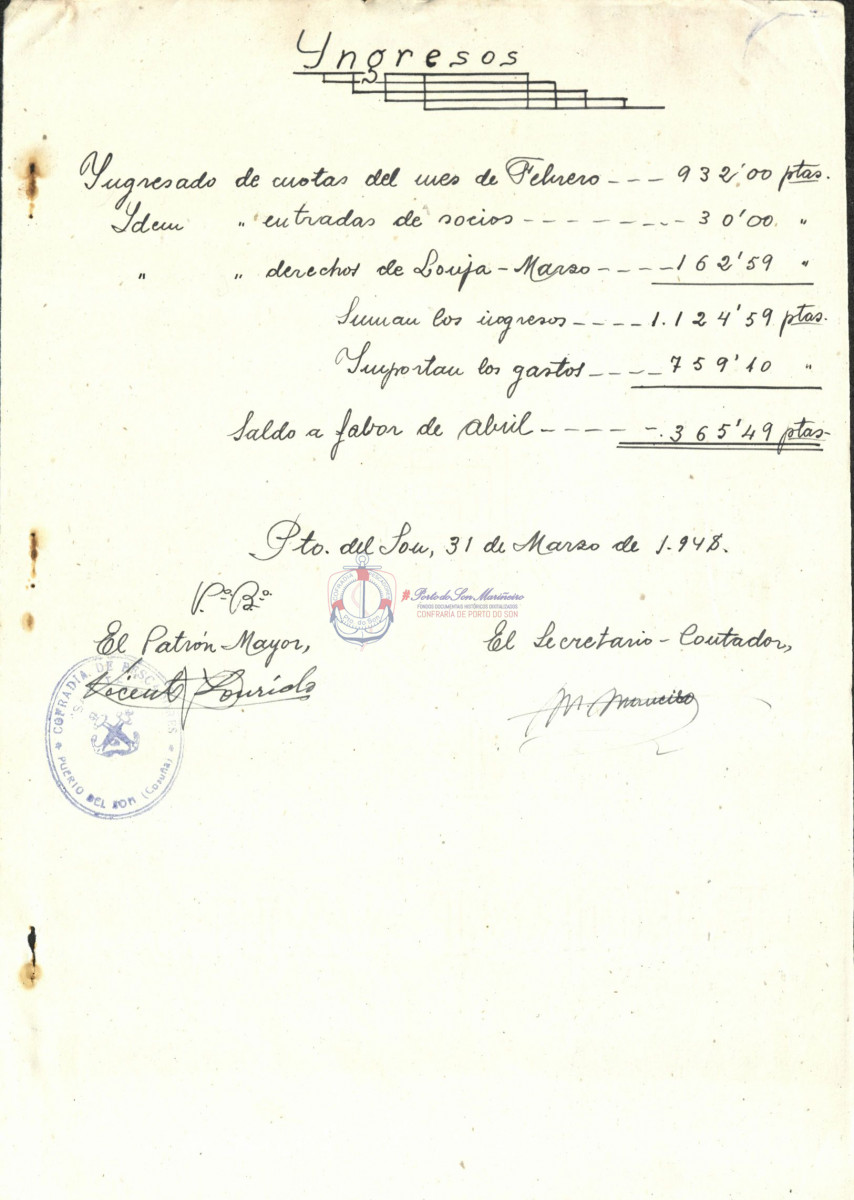 Yngresos
Yngresado de cuotas del mes de Febrero --- 932'00 ptas.
Idem " entradas de socios - - - - - - - - - 30'00 "
" " derechos de Lonja - Marzo - - - - - 162'59 "
Suman los ingresos - - - - 1.124'59 ptas.
Ymportan los gastos - - - - 759'10 "
Saldo a fabor de abril - - - - - - . 365'49 ptas-
Pto. del Son, 31 de Marzo de 1.948.
V.º B.º
El Patrón-Mayor,
El Secretario-Contador,
Vicent
COFRADIA DE PESCADORES
PUERTO DEL SON (Coruña)
COFRADIA
Pto. do Son
Porto do Son Mariñeiro
FONDOS DOCUMENTAIS HISTÓRICOS DIGITALIZADOS
CONFRARÍA DE PORTO DO SON